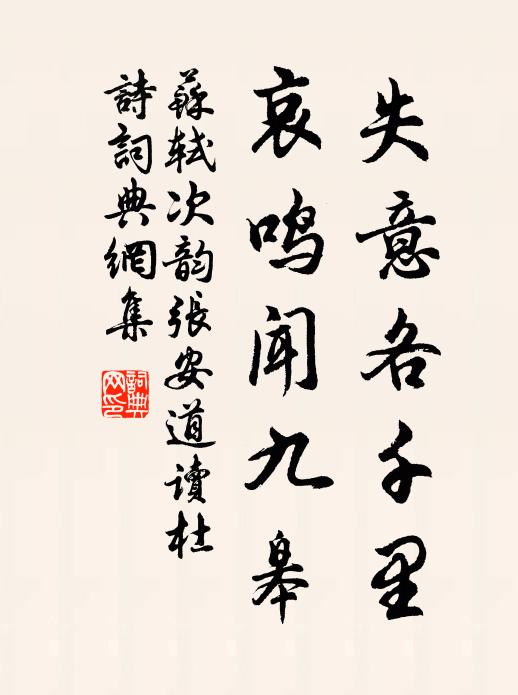 失意各千里
哀鸣闻九皋
蘇軾次韵張安道讀杜
詩詞典網集
詞典
网印